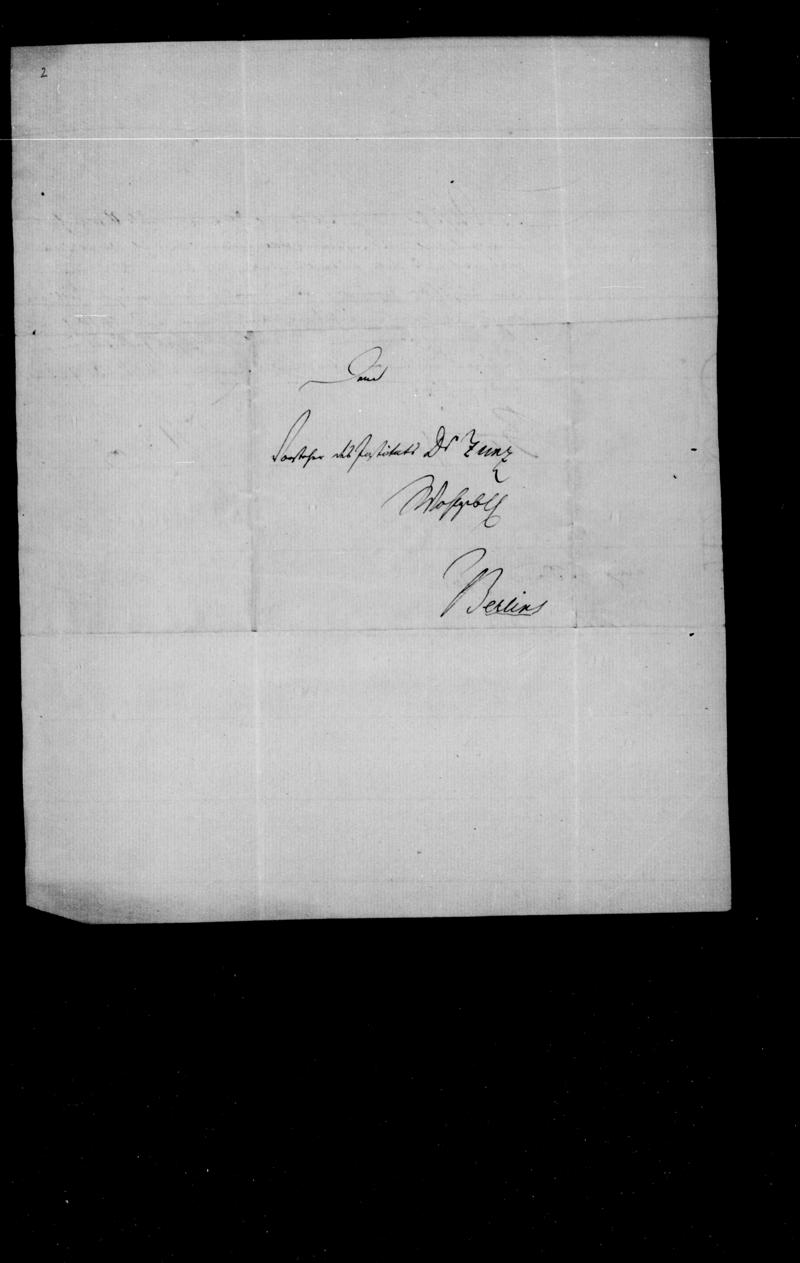 2
Dem
Vorsteher des Instituts Dr Zunz
Wohlgb
Berlin